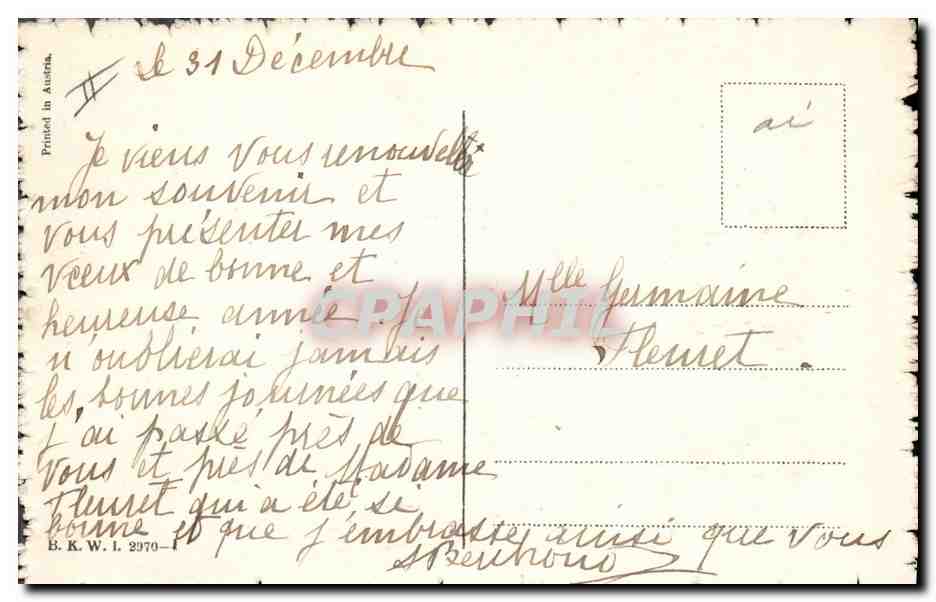 Printed in Austria.
II
Le 31 Décembre
Je viens vous renouveller
mon souvenir et
vous présenter mes
vœux de bonne et
heureuse année. Je
n'oublierai jamais
les bonnes journées que
j'ai passé près de
vous et près de Madame
Fleuret qui a été si
bonne et que j'embrasse ainsi que vous
B. K. W. I. 2970-1
ai
Mlle Germaine
Fleuret.
CPAPHIL